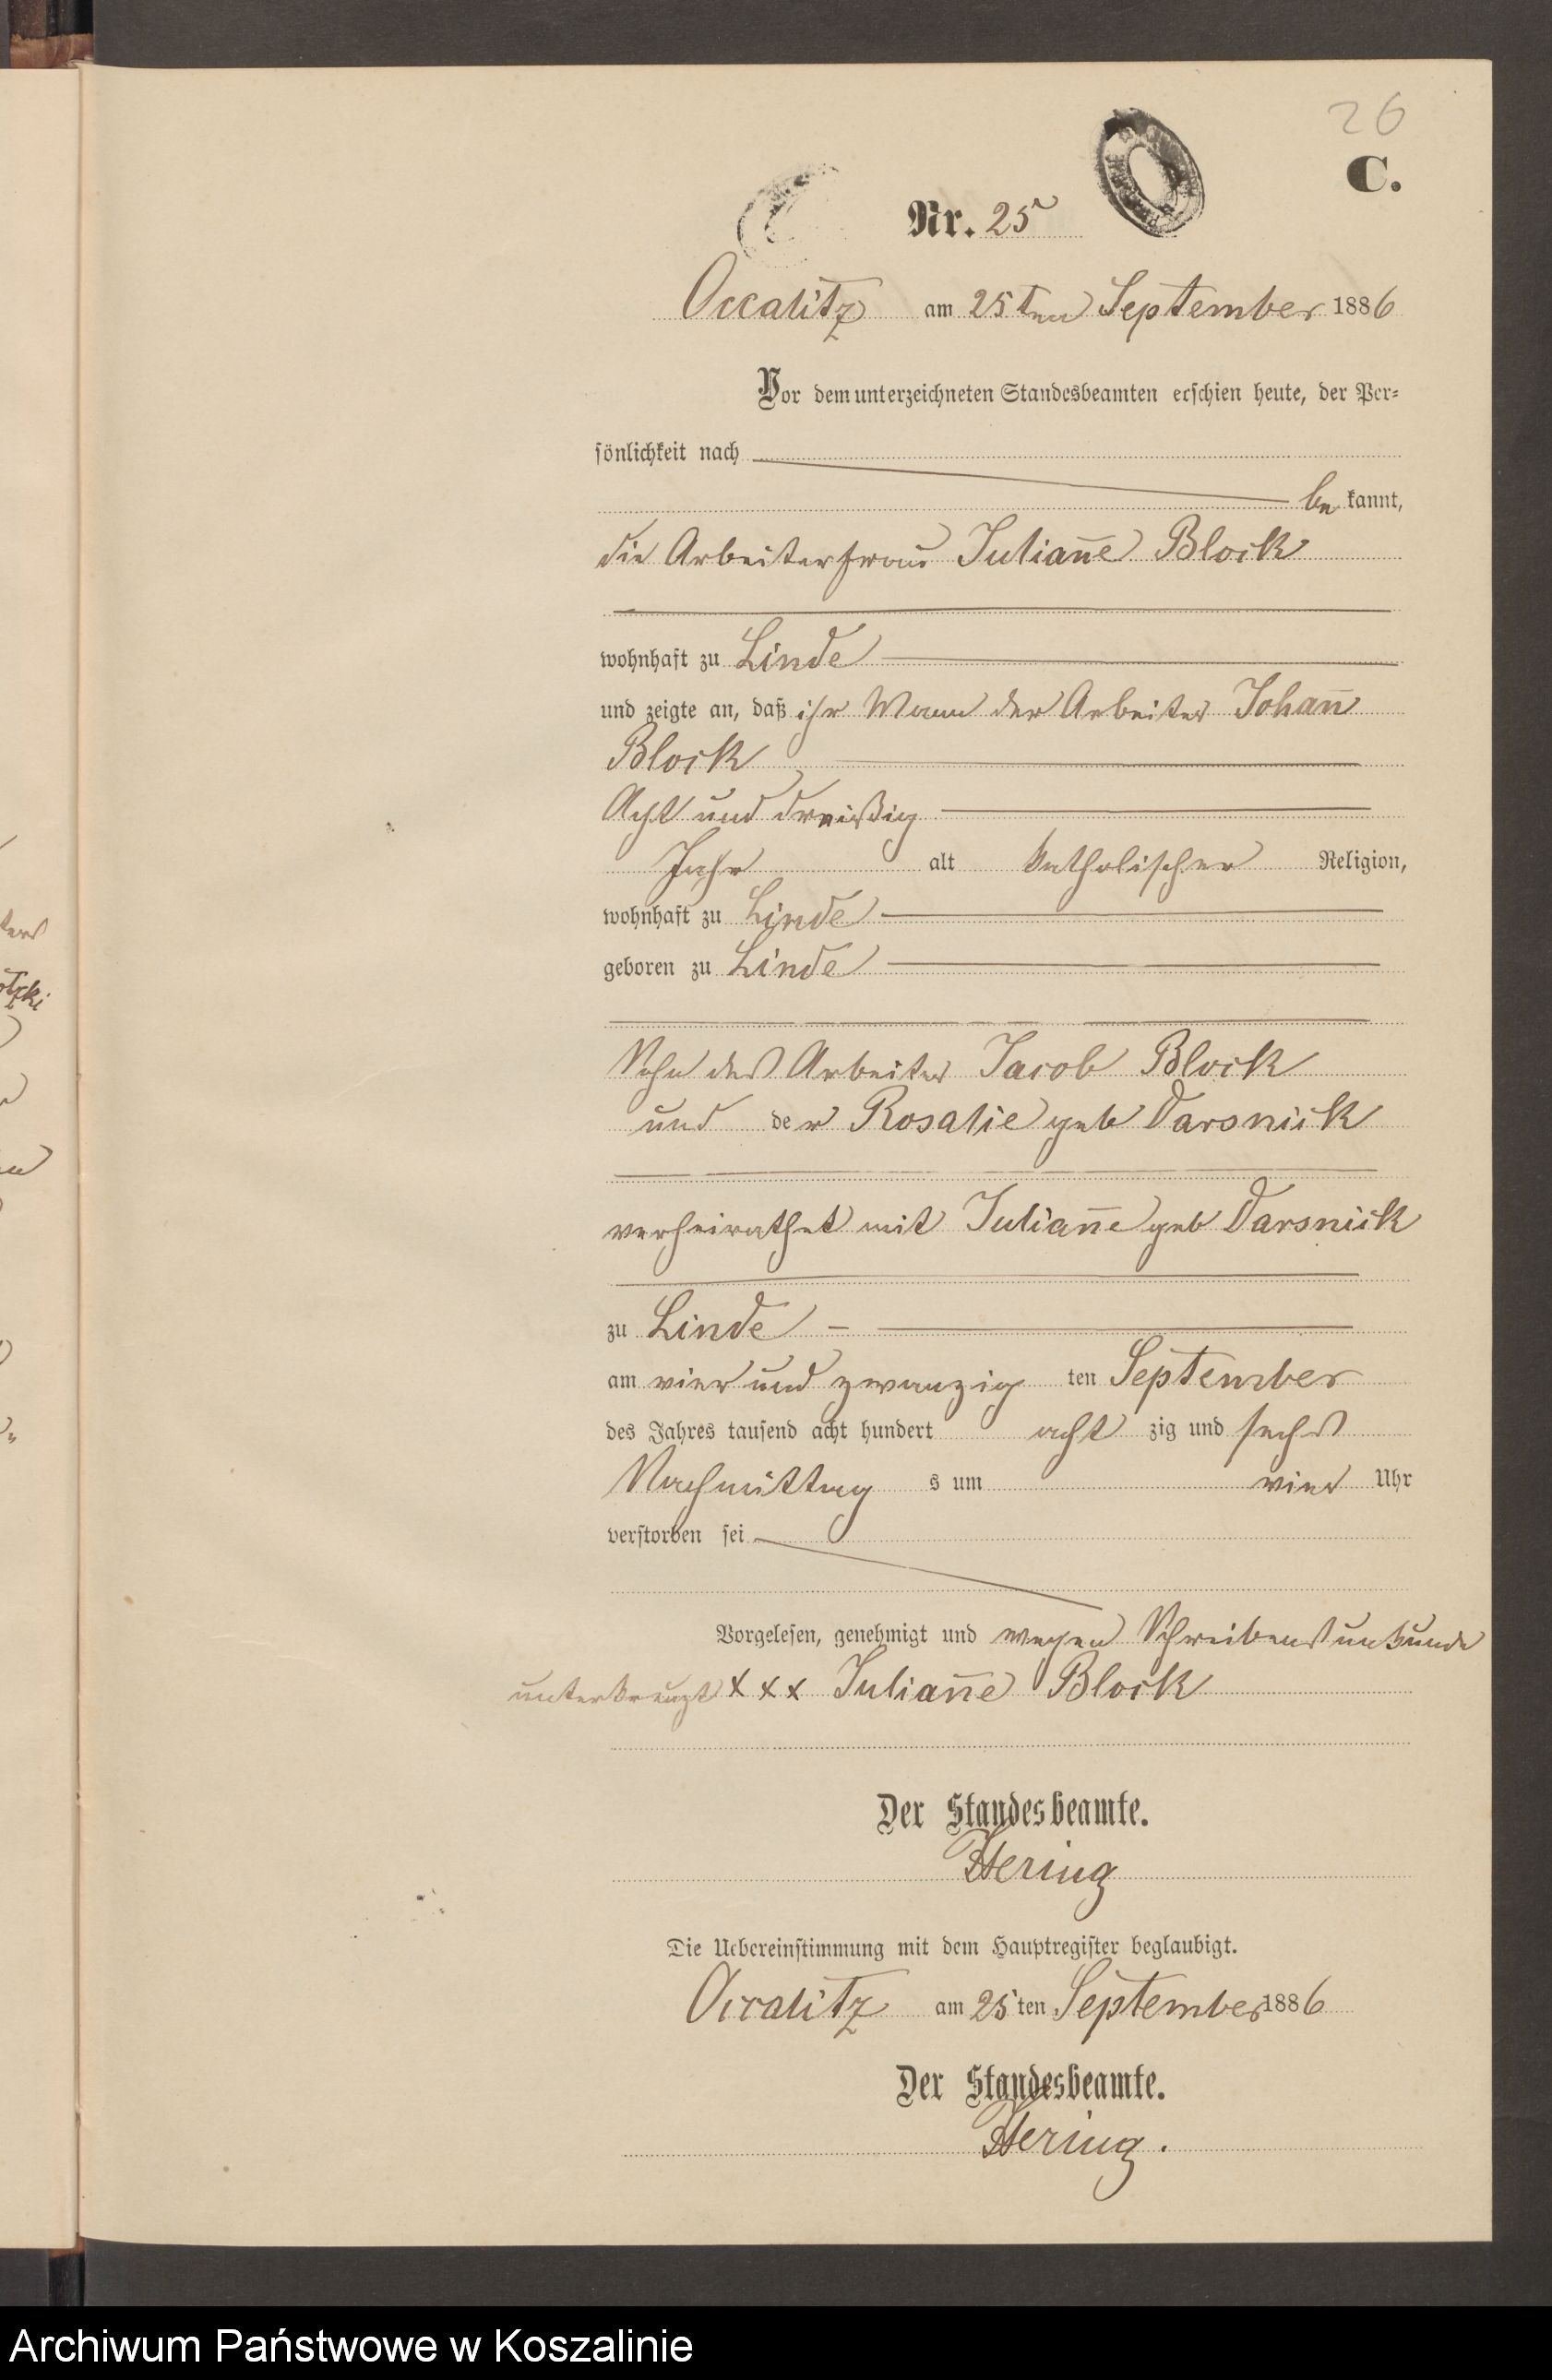 26
C.
Nr. 25
Occalitz am 25ten September 1886
Vor dem unterzeichneten Standesbeamten erschien heute, der Per-
sönlichkeit nach
be kannt,
die Arbeiterfrau Julian̄e Block
wohnhaft zu Linde
und zeigte an, daß ihr Mann der Arbeiter Johan̄
Block
Acht und dreißig
Jahr alt katholischer Religion,
wohnhaft zu Linde
geboren zu Linde
Sohn des Arbeiter Jacob Block
und der Rosalie geb Darsnick
verheirathet mit Julian̄e geb Darsnick
zu Linde
am vier und zwanzig ten September
des Jahres tausend acht hundert acht zig und sechs
Nachmittag s um vier Uhr
verstorben sei
Vorgelesen, genehmigt und wegen Schreibensunkunde
unterkreuzt x x x Julian̄e Block
Der Standesbeamte.
Hering
Die Uebereinstimmung mit dem Hauptregister beglaubigt.
Occalitz am 25 ten September 1886
Der Standesbeamte.
Hering.
Archiwum Państwowe w Koszalinie